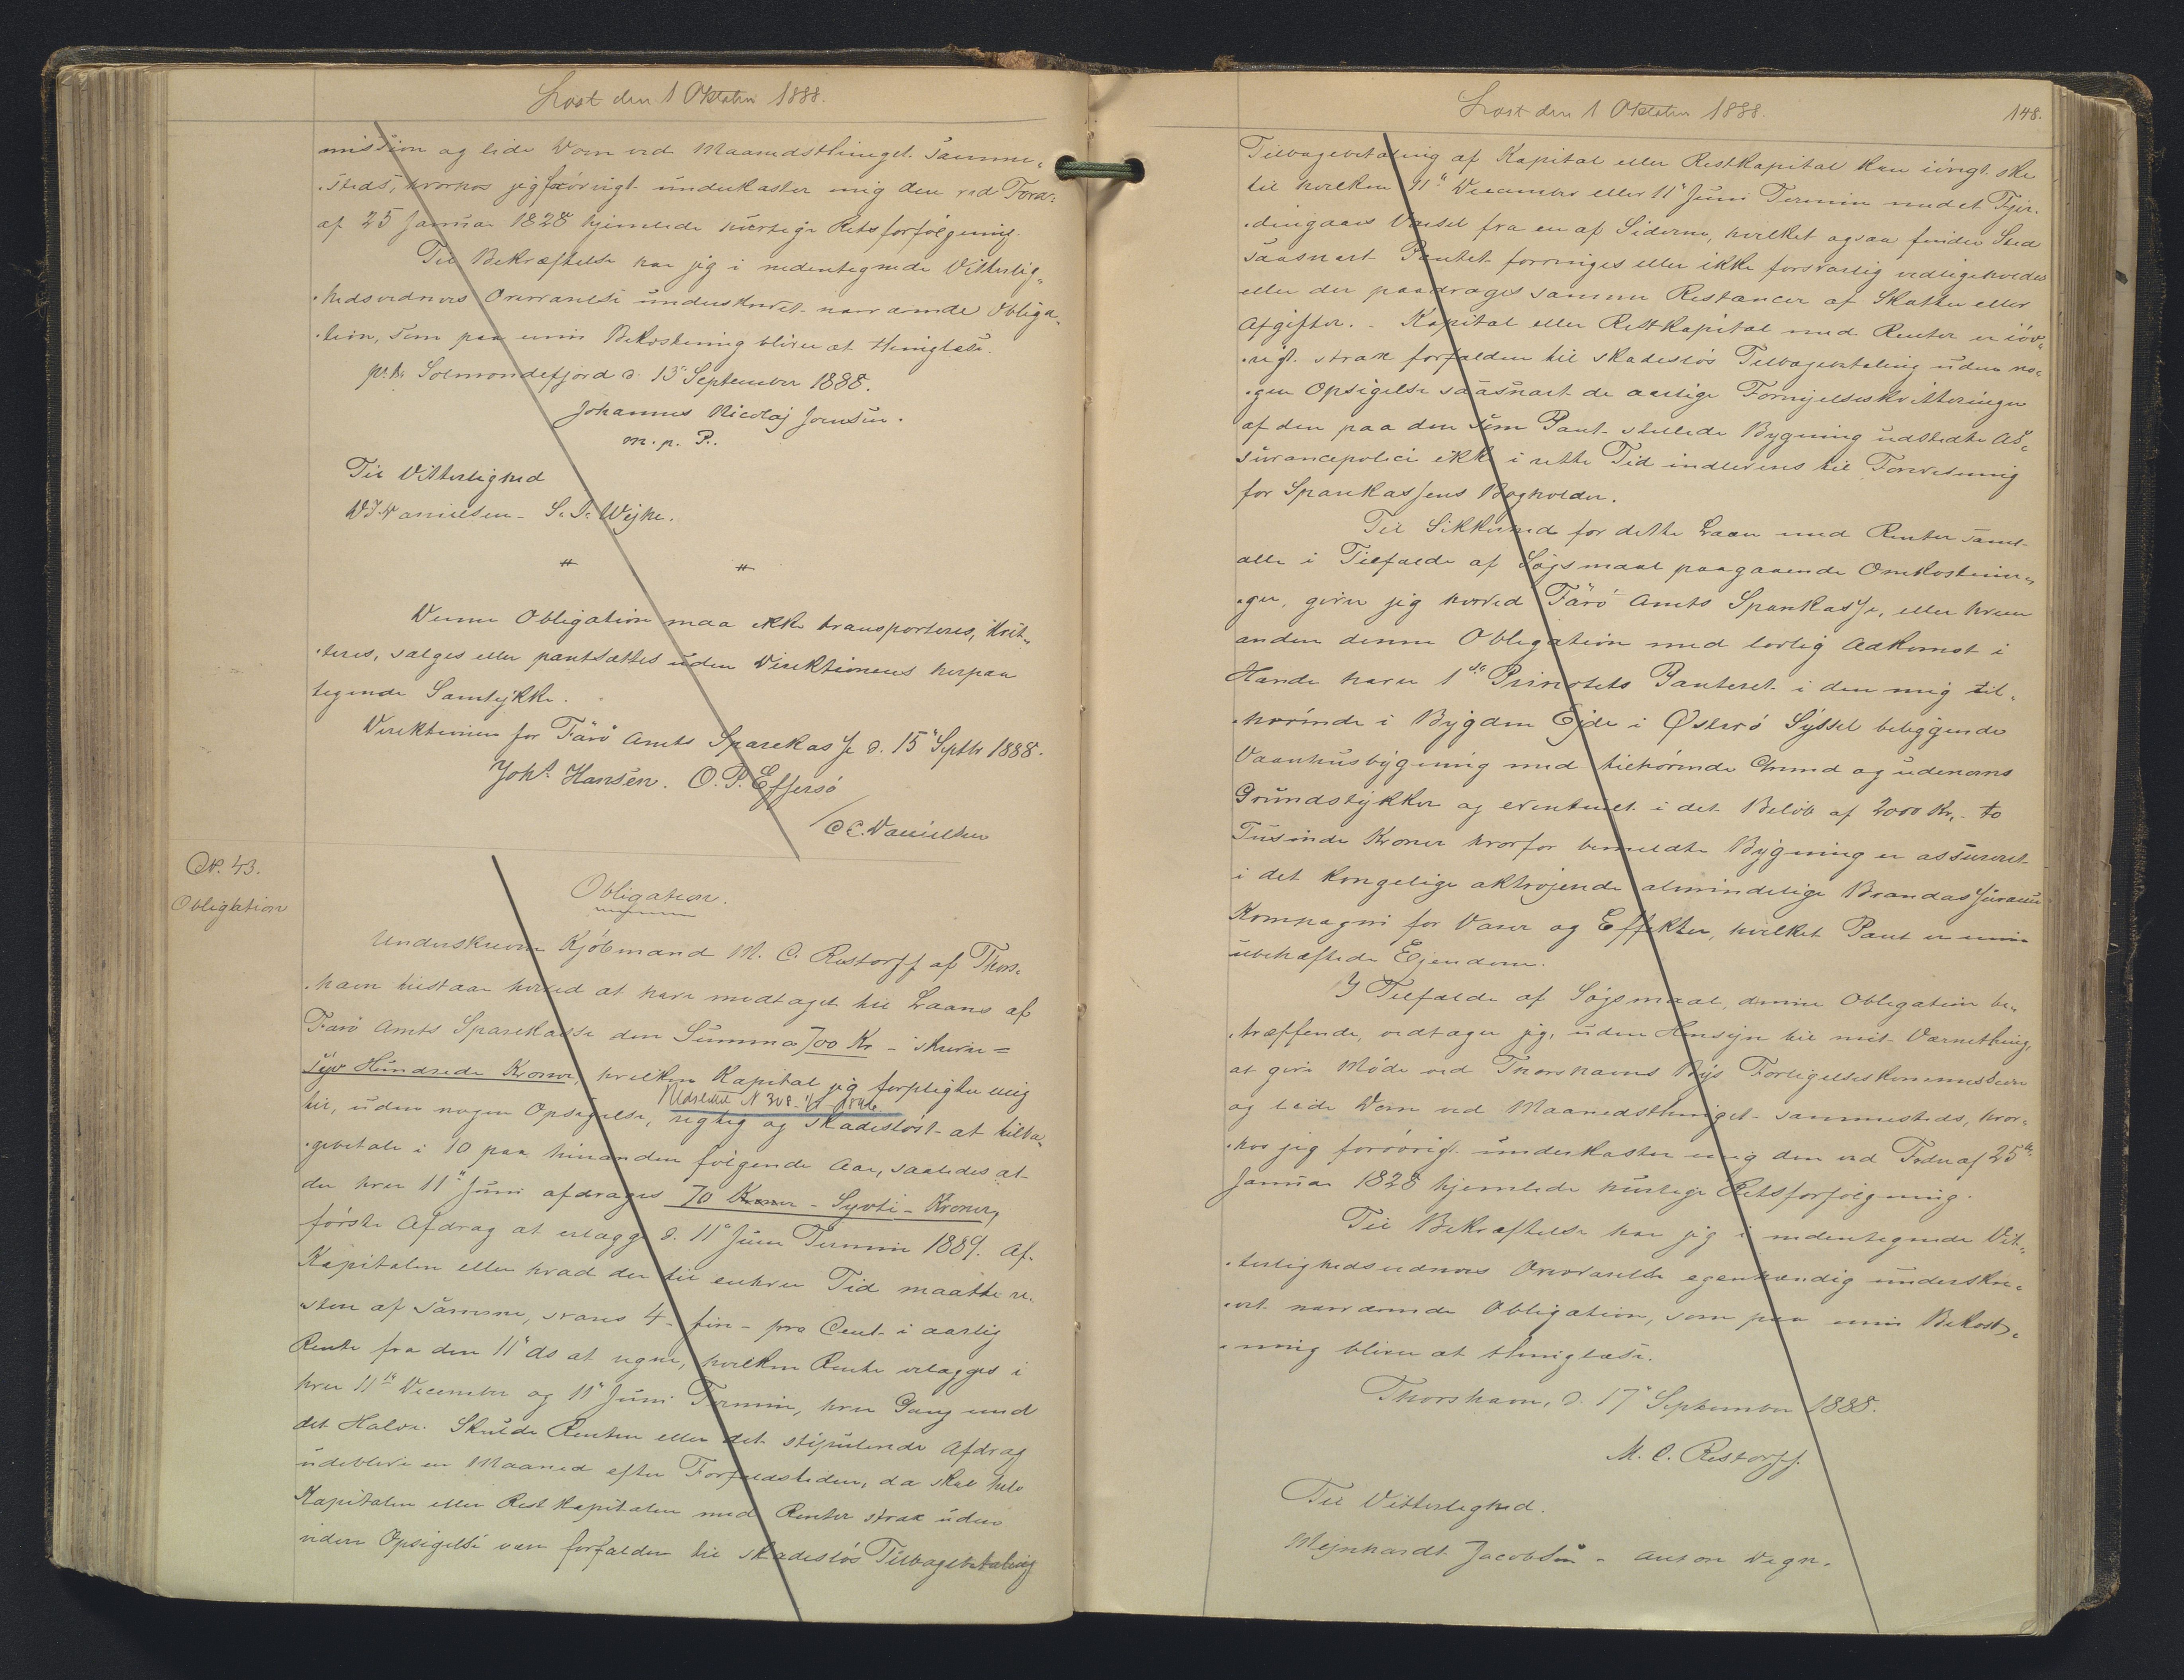 Læst den 1 Oktober 1888.
mission og lide Dom ved Maanedsthinget samme„
„steds, hvorhos jeg forövrigt underkaster mig den ved Fordr:
af 25 Januar 1828 hjemlede hurtige Retsforfölgning.
Til Bekræftelse har jeg i nedentegnede Vitterlig„
„hedsvidners Overværelse underskrevet nærværnde Obliga„
„tion, som paa min Bekostning bliver at thinglæse.
p. t. Solmondefjord d. 13" September 1888.
Johannes Nicolaj Joensen.
m. p. P.
Til Vitterlighed
D. J. Danielsen - S. P. Wejhe.
Denne Obligation maa ikke transporteres, kvit„
„teres, sælges eller pantsættes uden Direktionens herpaa
tegnede Samtykke.
Direktionen for Färö Amts Sparekasse d. 15" Septbr 1888.
Johs Hansen. O. P. Effersö
/ C. C. Danielsen
No. 43.
Obligation
Obligation.
Underskrevne Kjöbmand M. C. Restorff af Thors„
„havn tilstaar herved at have modtaget til Laans af
Färö Amts Sparekasse den Summa 700 Kr - skriver =
Syv Hundrede Kroner, hvilken Kapital jeg forpligter mig
til, uden nogen Opsigelse, rigtig og skadeslöst at tilba„
„gebetale i 10 paa hinanden fölgende Aar, saaledes at
der hver 11" Juni afdrages 70 Kroner - Syvti - Kroner,
förste Afdrag at erlægge d. 11" Juni Termin 1889. Af
Kapitalen eller hvad der til enhver Tid maatte re„
„stere af samme, svares 4 - fire - pro Cent i aarlig
Rente fra den 11" ds at regne, hvilken Rente erlægges i
hver 11te December og 11" Juni Termin, hver Gang med
det Halve. Skulde Renten eller det stipulerede Afdrag
udeblive en Maaned efter Forfaldstiden, da skal hele
Kapitalen eller Restkapitalen med Renter strax uden
videre Opsigelse være forfalden til skadeslös Tilbagebetaling
Læst den 1 Oktober 1888.
148.
Tilbagebetaling af Kapital eller Restkapital kan iövrigt ske
til hvilken 11" December eller 11" Juni Termin med et Fjer„
„dingaars Varsel fra en af Siderne, hvilket ogsaa finder Sted
saasnart Pantet forringes eller ikke forsvarlig vedligeholdes
eller der paadrages samme Restancer af Skatter eller
Afgifter. - Kapital eller Restkapital med Renter er iöv„
„rigt strax forfalden til skadeslös Tilbagebetaling uden no„
„gen Opsigelse saasnart de aarlige Fornyelseskvitteringer
af den paa den som Pant stillede Bygning udstedte As„
surancepolice ikke i rette Tid indleveres til Forevisning
for Sparekassens Bogholder.
Til Sikkerhed for dette Laan med Renter samt
alle i Tilfælde af Sögsmaal paagaaende Omkostnin„
„ger, giver jeg herved Färö Amts Sparekasse, eller hvem
anden denne Obligation med lovlig Adkomst i
Hænde haver 1ste Prioritets Panteret i den mig til„
„hörende i Bygden Ejde i Österö Syssel beliggende
Vaanhusbygning med tilhörende Grund og udenoms
Grundstykker og eventuelt i det Belöb af 2000 Kr. - to
Tusinde Kroner hvorfor bemeldte Bygning er assureret
i det kongelige oktrojerede almindelige Brandassurance
Kompagni for Varer og Effekter, hvilket Pant er min
ubehæftede Ejendom.
I Tilfælde af Sögsmaal, denne Obligation be„
„træffende, vedtager jeg, uden Hensyn til mit Værnething,
at give Möde ved Thorshavns Bys Forligelseskommission
og lide Dom ved Maanedsthinget sammesteds, hvor„
„hos jeg forövrigt underkaster mig den ved Frdn af 25de
Januar 1828 hjemlede hurtige Retsforfölgning.
Til Bekræftelse har jeg i nedentegnede Vit„
„terlighedsvidners Overværelse egenhændig underskre„
„vet nærværnde Obligation, som paa min Bekost„
„ning bliver at thinglæse.
Thorshavn, d. 17" September 1888.
M. C. Restorff.
Til Vitterlighed.
Mejnhardt Jacobsen - Anton Degn.